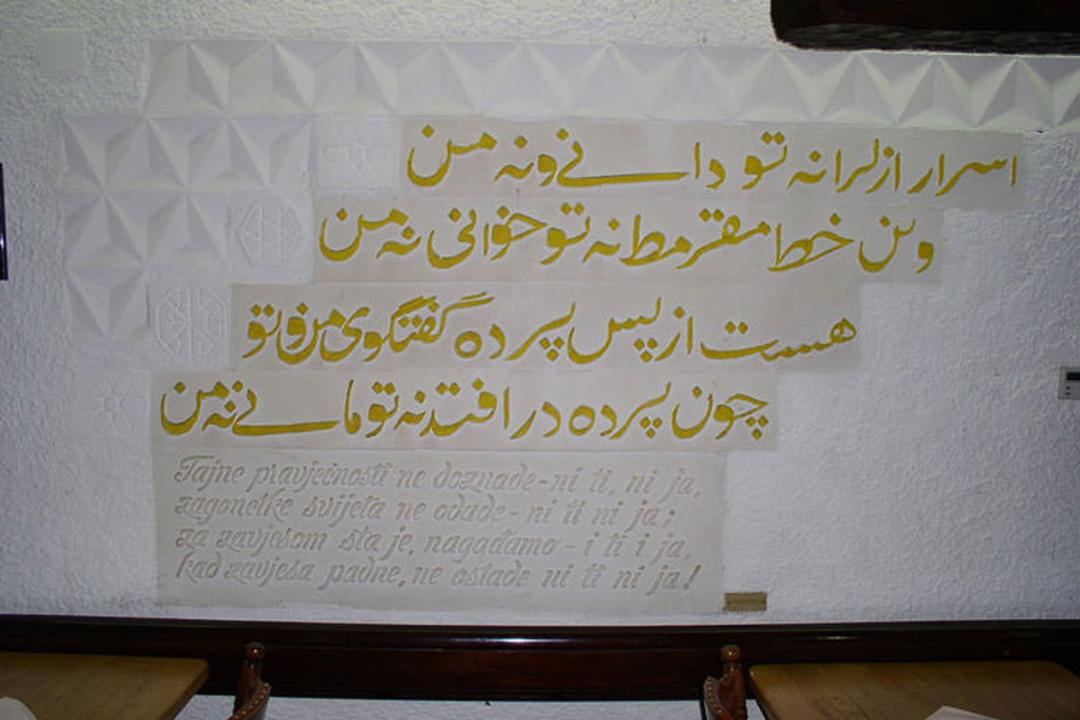 اسرار ازلرا نه تو دانے ونه من
وین خط مقرمط نه تو خوانی نه من
هست از پس پرده گفتگوی من و تو
چون پرده در افتد نه تو مانے نه من
Tajne pravječnosti ne doznade-ni ti, ni ja,
zagonetke svijeta ne odade - ni ti ni ja;
za zavjesom šta je, nagađamo - i ti i ja,
kad zavjesa padne, ne ostade ni ti ni ja!